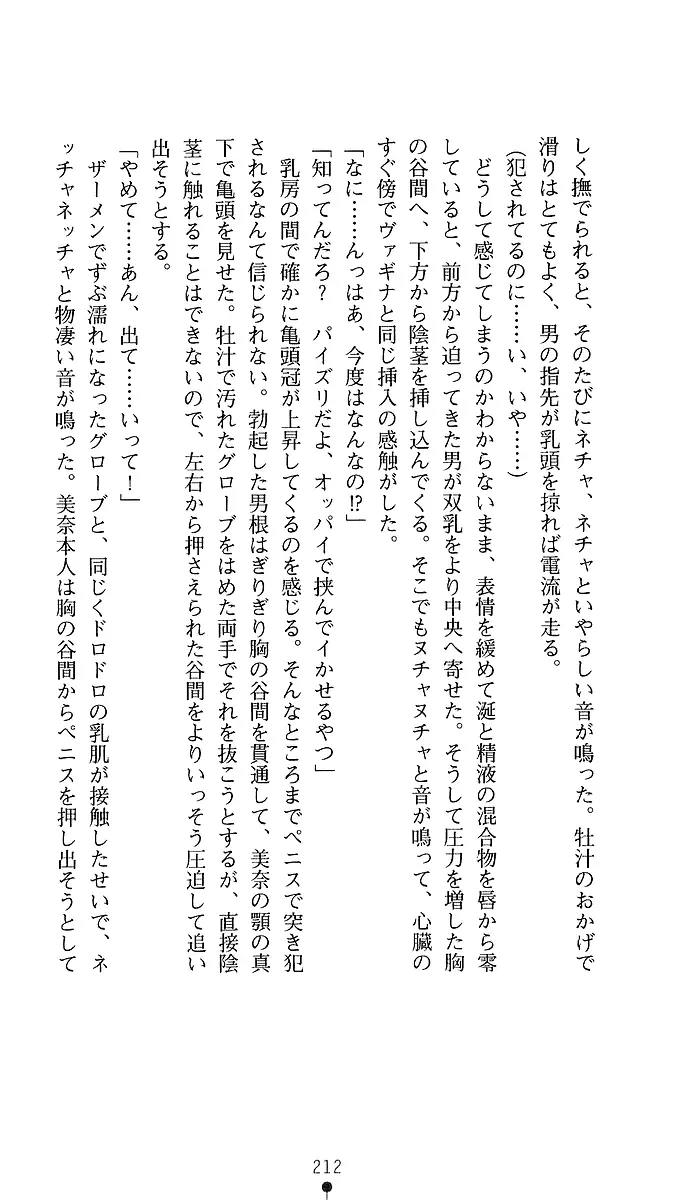 しく撫でられると、そのたびにネチャ、ネチャといやらしい音が鳴った。牡汁のおかげで
滑りはとてもよく、男の指先が乳頭を掠れば電流が走る。
（犯されてるのに……い、いや……）
どうして感じてしまうのかわからないまま、表情を緩めて涎と精液の混合物を唇から零
していると、前方から迫ってきた男が双乳をより中央へ寄せた。そうして圧力を増した胸
の谷間へ、下方から陰茎を挿し込んでくる。そこでもヌチャヌチャと音が鳴って、心臓の
すぐ傍でヴァギナと同じ挿入の感触がした。
「なに……んっはあ、今度はなんなの!?」
「知ってんだろ？　パイズリだよ、オッパイで挟んでイかせるやつ」
乳房の間で確かに亀頭冠が上昇してくるのを感じる。そんなところまでペニスで突き犯
されるなんて信じられない。勃起した男根はぎりぎり胸の谷間を貫通して、美奈の顎の真
下で亀頭を見せた。牡汁で汚れたグローブをはめた両手でそれを抜こうとするが、直接陰
茎に触れることはできないので、左右から押さえられた谷間をよりいっそう圧迫して追い
出そうとする。
「やめて……あん、出て……いって！」
ザーメンでずぶ濡れになったグローブと、同じくドロドロの乳肌が接触したせいで、ネ
ッチャネッチャと物凄い音が鳴った。美奈本人は胸の谷間からペニスを押し出そうとして
212